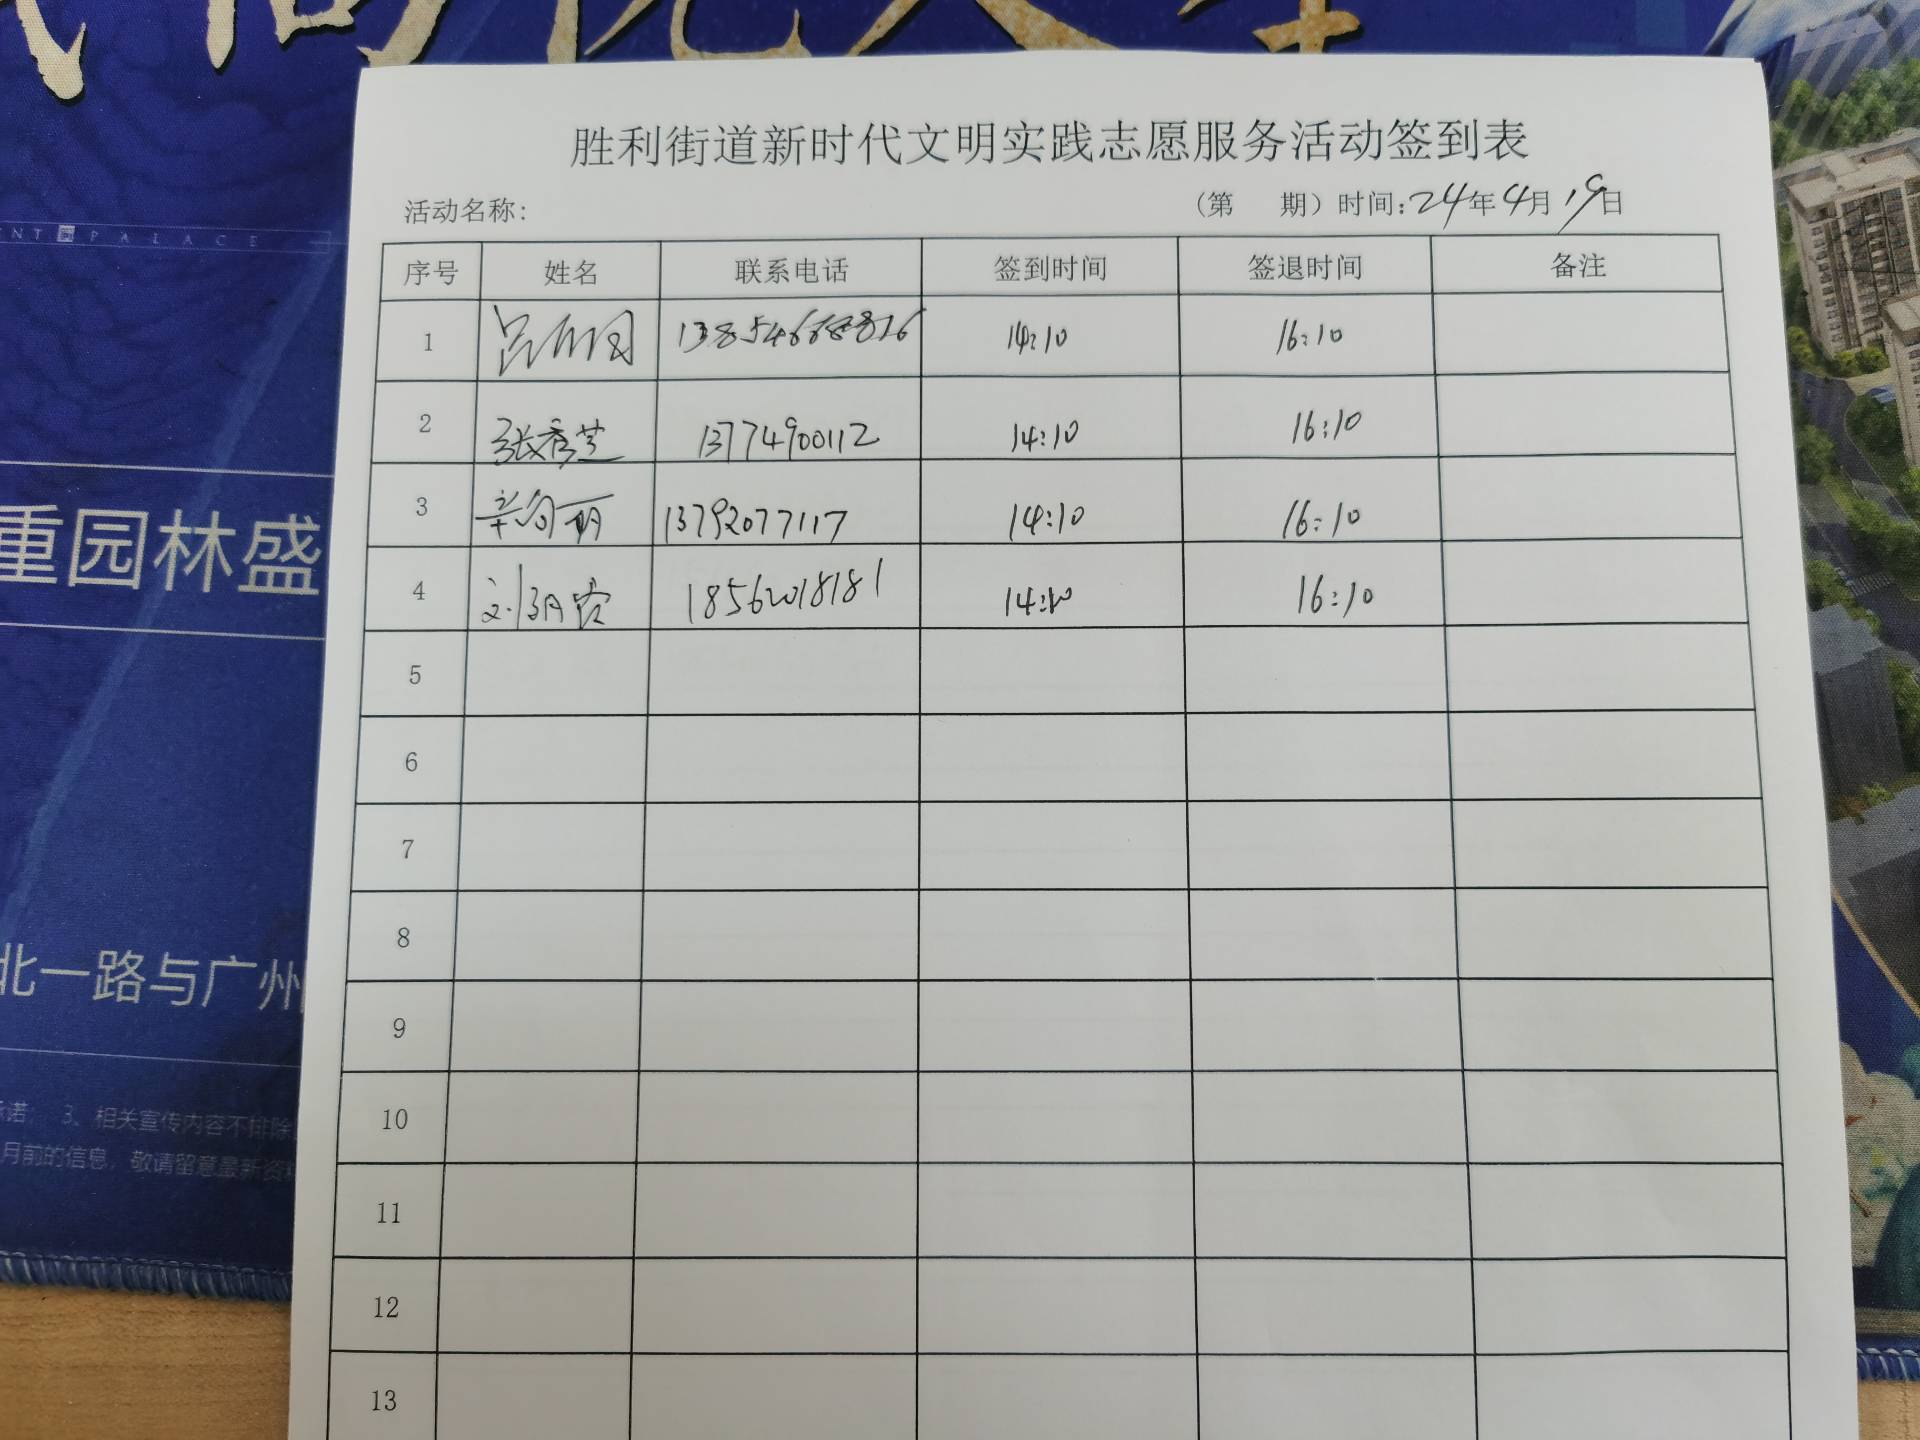 ENT PALACE
重园林盛
北一路与广州
承诺； 3、相关宣传内容不排除
月前的信息，敬请留意最新资
胜利街道新时代文明实践志愿服务活动签到表
活动名称： （第 期）时间：24年4月19日
序号 姓名 联系电话 签到时间 签退时间 备注
1 14:10 16:10
2 张秀芝 13774900112 14:10 16:10
3 13792077117 14:10 16:10
4 18562018181 14:10 16:10
5
6
7
8
9
10
11
12
13